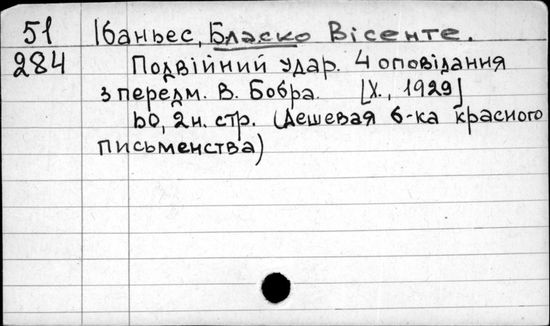 51 Ібаньес, Бласко Вісенте.
284 Подвійний удар. 4 оповідання
з передм. В. Бобра. [Х., 1929]
60, 2н. стр. (Дешевая б-ка красного
письменства)